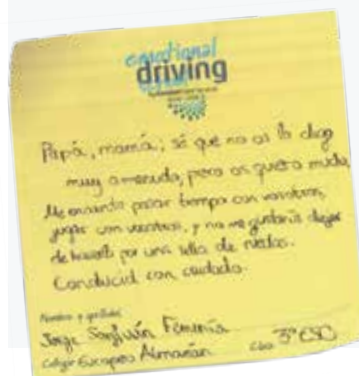 emotional
driving
Papá, mamá; sé que no os lo digo
muy amenudo, pero os quiero mucho,
Me encanta pasar tiempo con vosotros,
jugar con vosotros, y no me gustaría dejar
de hacerlo por una silla de ruedas.
Conducid con cuidado.
Nombre y apellidos
Jorge Sanjuán Femenía
Colegio Europeo Almazán Clase 3º ESO